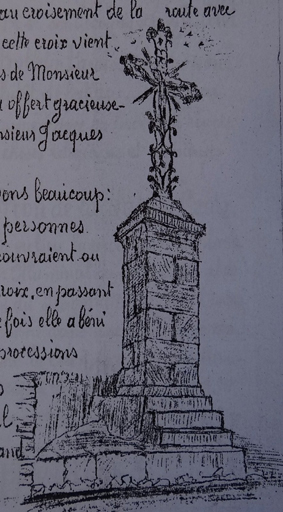 au croisement de la route avec
cette croix vient
s de Monsieur
offert gracieuse-
nsieur Jacques
ons beaucoup:
personnes
ouvraient ou
roix, en passant
fois elle a béni
processions